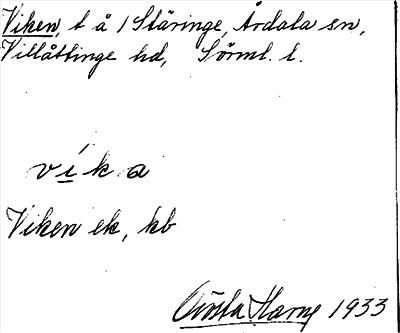 Viken, t å 1 Stäringe, Årdala sn,
Villåttinge hd, Sörml. l.
v í k a
Viken ek, kb
Gösta Harne 1933